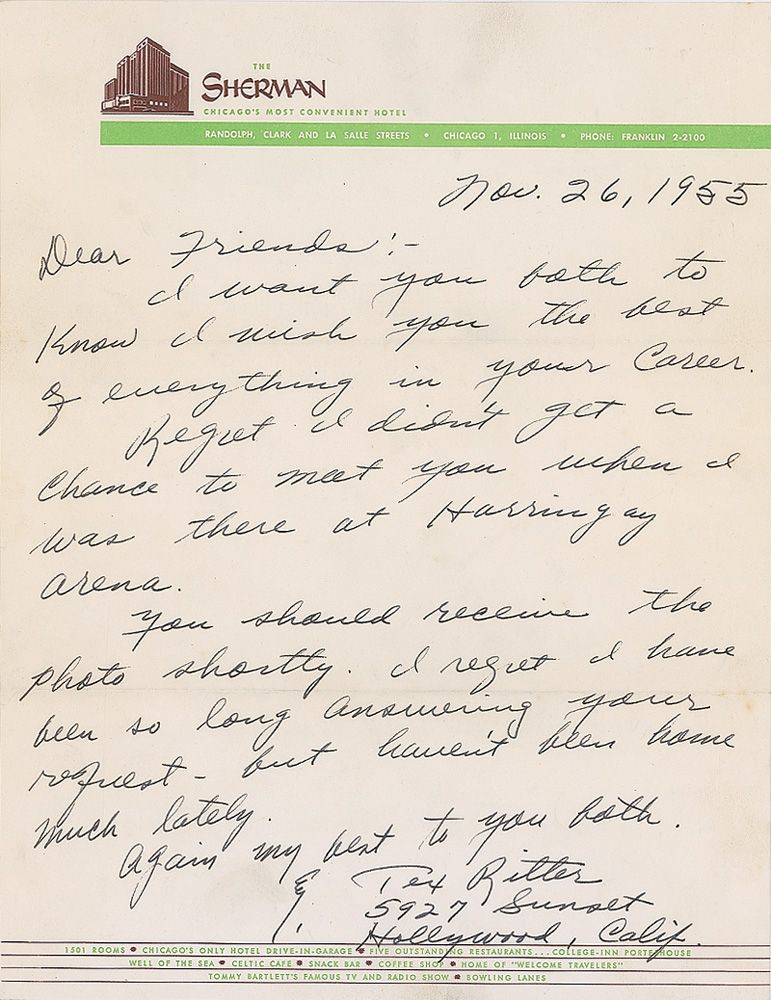 THE
SHERMAN
CHICAGO'S MOST CONVENIENT HOTEL
RANDOLPH, CLARK AND LA SALLE STREETS • CHICAGO 1, ILLINOIS • PHONE: FRANKLIN 2-2100
Nov. 26, 1955
Dear Friends:-
I want you both to
know I wish you the best
of everything in your Career.
Regret I didn't get a
Chance to meet you when I
was there at Harringay
arena.
You should receive the
photo shortly. I regret I have
been so long answering your
request - but haven't been home
much lately.
Again my best to you both.
Tex Ritter
5927 Sunset
Hollywood, Calif.
1501 ROOMS • CHICAGO'S ONLY HOTEL DRIVE-IN-GARAGE • FIVE OUTSTANDING RESTAURANTS...COLLEGE-INN PORTERHOUSE
WELL OF THE SEA • CELTIC CAFE • SNACK BAR • COFFEE SHOP • HOME OF "WELCOME TRAVELERS"
TOMMY BARTLETT'S FAMOUS TV AND RADIO SHOW • BOWLING LANES